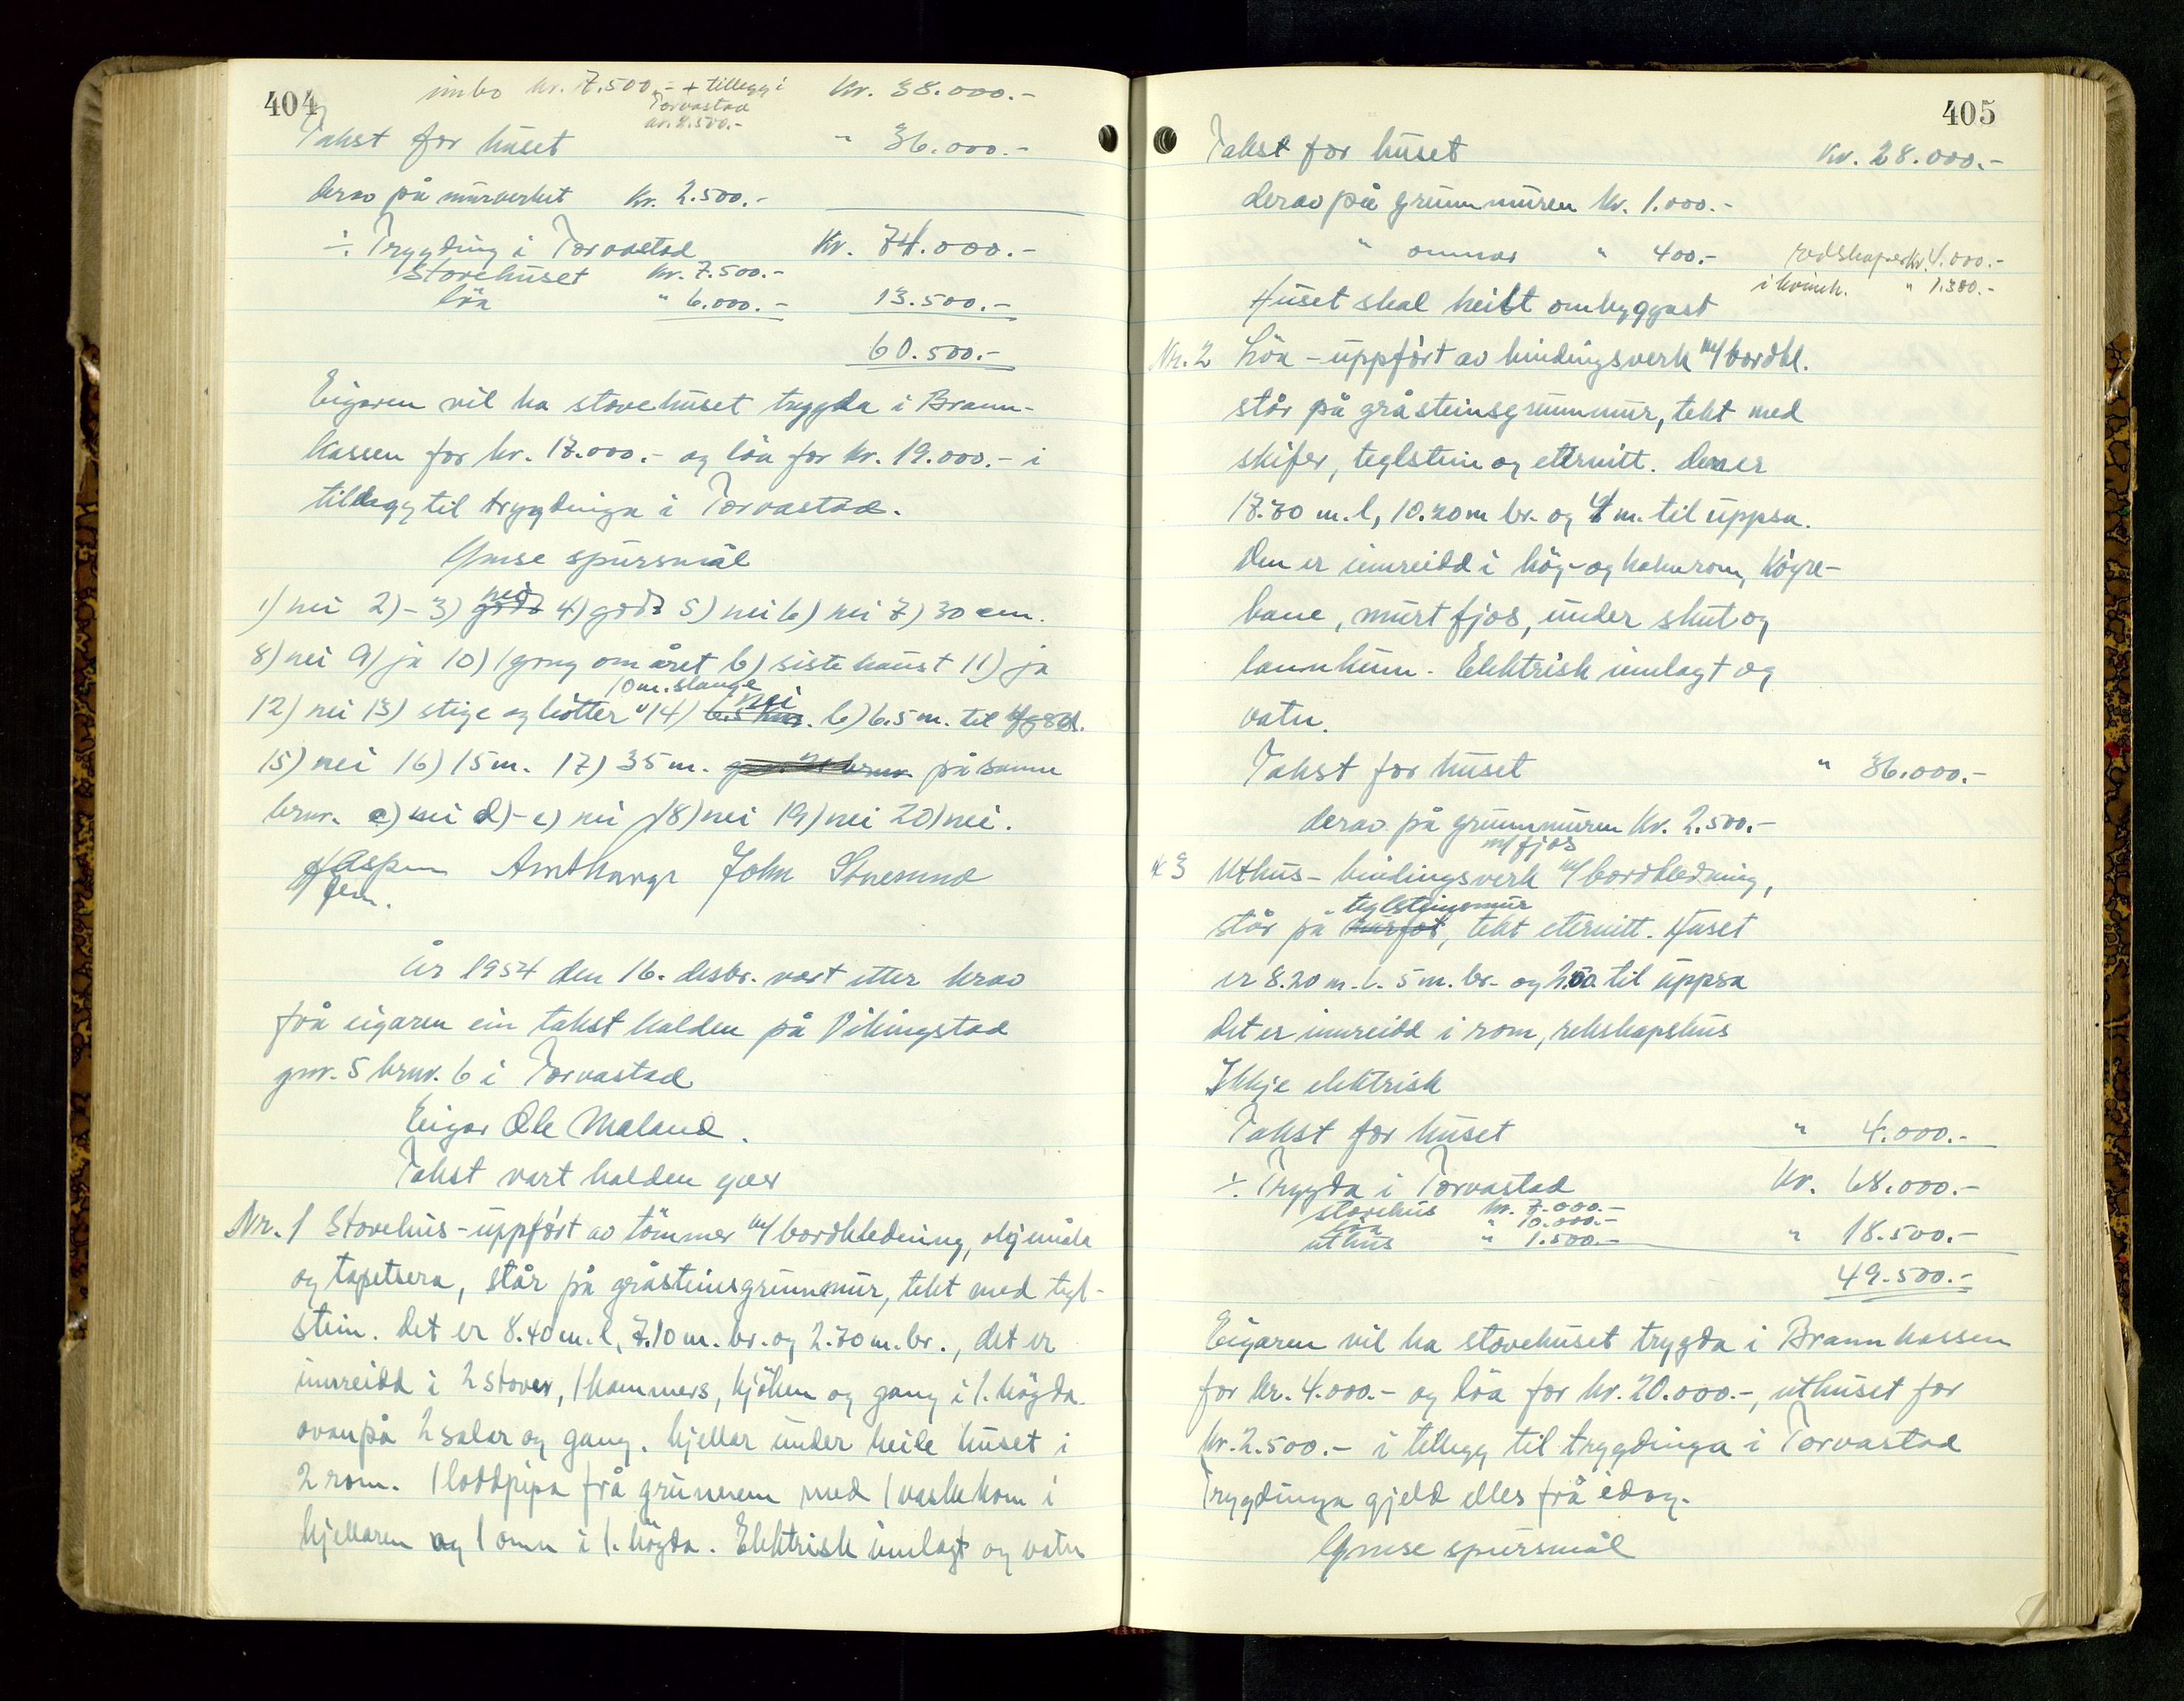 404
innbo kr. 7.500.- + tillegg i Kr. 38.000.-
Torvastad
kr. 2.500.-
Takst for huset " 36.000.-
derav på murverket Kr. 2.500.-
÷ Trygding i Torvastad Kr. 74.000.-
Stovehuset kr. 7.500.-
löa " 6.000.- 13.500.-
60.500.-
Eigaren vil ha stovehuset trygda i Brann-
kassen for kr. 17.000.- og löa for kr. 19.000.- i
tillegg til trygdinga i Torvastad.
Ymse spursmål
1) nei 2) - 3) godt nei 4) godt 5) nei 6) nei 7) 30 cm.
8) nei 9) ja 10) 1 gong om året b) siste haust 11) ja
10 m. slange
12) nei 13) stige og bötter 14) nei b) 6.5 m. til
15) nei 16) 15 m. 17) 35 m. på samme
brnr. c) nei d) - e) nei 18) nei 19) nei 20) nei.
John Stuesund
År 1954 den 16. desbr. vart etter krav
frå eigaren ein takst halden på Vikingstad
gnr. 5 brnr. 6 i Torvastad
Eigar Ole Maland.
Takst vart halden over
Nr. 1 Stovehus - uppfört av tömmer m/ bordkledning, oljemåla
og tapetsera, står på gråsteinsgrunnmur, tekt med tegl-
stein. Det er 8.40 m. l, 7.10 m. br. og 2.70 m. br., det er
innreidd i 2 stover, 1 kammers, kjöken og gang i 1. högda
ovanpå 2 salar og gang. Kjellar under heile huset i
2 rom. 1 loddpipa frå grunnen med 1 vaskekom i
kjellaren og 1 omn i 1. högda. Elektrisk innlagt og vatn
405
Takst for huset Kr. 28.000.-
derav på grunnmuren kr. 1.000.-
" omnar " 400.- redskaper kr. 4.000.-
" 1.300.-
Huset skal heilt ombyggast
Nr. 2 Löa - uppfört av bindingsverk m/ bordkl.
står på gråsteinsgrunnmur, tekt med
skifer, teglstein og eternitt. Den er
17.70 m. l, 10.20 m br. og 4 m. til uppsa.
Den er innreidd i höy- og halmrom, köyre-
bane, murt fjos, under skut og
lannkum. Elektrisk innlagt og
vatn.
Takst for huset " 36.000.-
derav på grunnmuren Kr. 2.500.-
m/ fjos
nr 3 Uthus - bindingsverk m/ bordkledning,
teglsteinsmur
står på murfot, tekt eternitt. Huset
er 8.20 m. l. 5 m. br. og 2.50 til uppsa
Det er innreidd i rom, reiskapshus
Ikkje elektrisk
Takst for huset " 4.000.-
÷ Trygda i Torvastad Kr. 68.000.-
stovehus kr. 7.000.-
löa " 10.000.-
uthus " 1.500.- " 18.500.-
49.500.-
Eigaren vil ha stovehuset trygda i Brannkassen
for kr. 4.000.- og löa for kr. 20.000.-, uthuset for
kr. 2.500.- i tillegg til trygdinga i Torvastad
Trygdinga gjeld elles frå idag.
Ymse spursmål